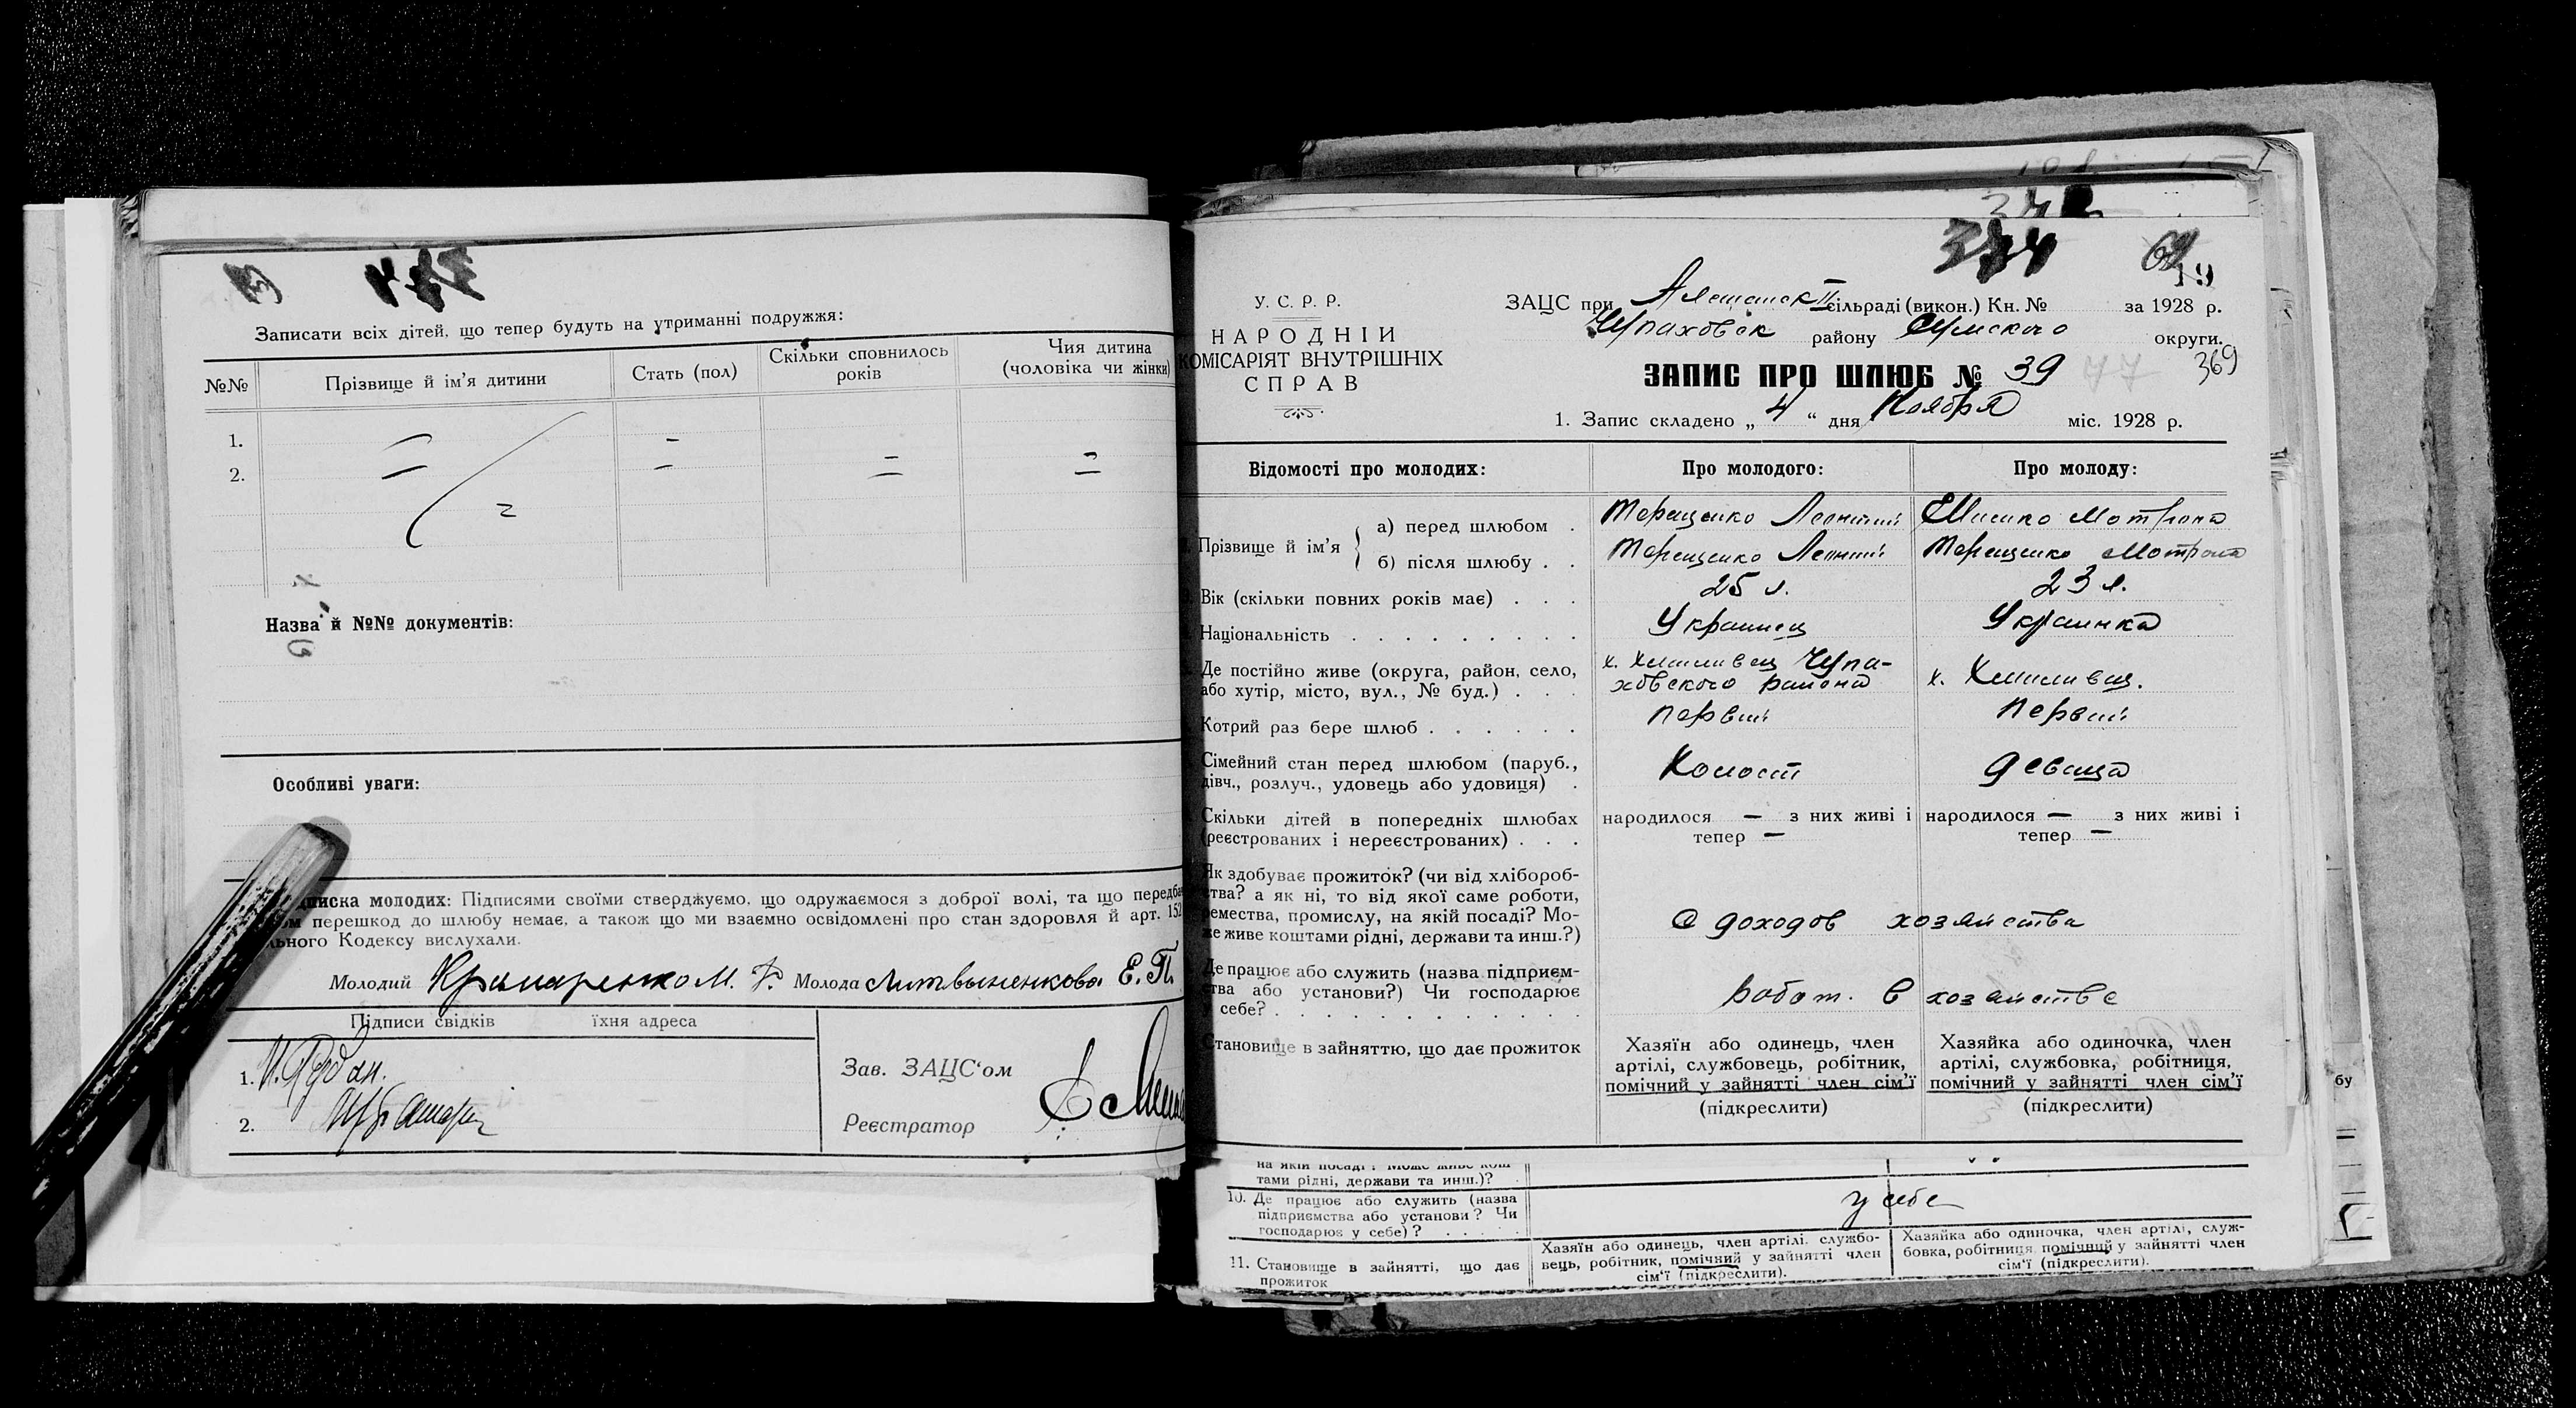 Записати всіх дітей, що тепер будуть на утриманні подружжя:
№№
Прізвище й ім'я дитини
Стать (пол)
Скільки сповнилось
років
Чия дитина
(чоловіка чи жінки)
1.
2.
Назва й №№ документів:
Особливі уваги:
писка молодих: Підписями своїми стверджуємо, що одружаємося з доброї волі, та що передба
ом перешкод до шлюбу немає, а також що ми взаємно освідомлені про стан здоровля й арт. 152
льного Кодексу вислухали.
Молодий Крамаренко М. Молода Литвыненкова Е. П.
Підписи свідків їхня адреса
1.
2.
Зав. ЗАЦС'ом
Реєстратор
У. С. Р. Р.
НАРОДНІЙ
КОМІСАРІЯТ ВНУТРІШНІХ
СПРАВ
374
ЗАЦС при сільраді (викон.) Кн. № за 1928 р.
Чупаховск району Сумского округи.
369
ЗАПИС ПРО ШЛЮБ № 39
1. Запис складено „ 4 “ дня Ноября міс. 1928 р.
Відомості про молодих:
Про молодого:
Про молоду:
Прізвище й ім'я
а) перед шлюбом
Терещенко Леонтий
Шишко Мотрона
б) після шлюбу
Терещенко Леонтий
Терещенко Мотрона
Вік (скільки повних років має)
25 л.
23 л.
Національність
Украинец
Украинка
Де постійно живе (округа, район, село,
або хутір, місто, вул., № буд.)
х. Хмиливец Чупа-
ховского района
х. Хмиливец.
Котрий раз бере шлюб
Первий
Первий
Сімейний стан перед шлюбом (паруб.,
дівч., розлуч., удовець або удовиця)
Холост
девица
Скільки дітей в попередніх шлюбах
(реєстрованих і нереєстрованих)
народилося — з них живі і
тепер —
народилося — з них живі і
тепер —
Як здобуває прожиток? (чи від хлібороб-
ства? а як ні, то від якої саме роботи,
ремества, промислу, на якій посаді? Мо-
же живе коштами рідні, держави та инш.?)
С доходов хозяйства
Де працює або служить (назва підприєм-
ства або установи?) Чи господарює
у себе?
работ. в хозяйстве
Становище в зайняттю, що дає прожиток
Хазяїн або одинець, член
артілі, службовець, робітник,
помічний у зайнятті член сім'ї
(підкреслити)
Хазяйка або одиночка, член
артілі, службовка, робітниця,
помічний у зайнятті член сім'ї
(підкреслити)
бу
на якій посаді? Може живе кош
тами рідні, держави та инш.)?
10. Де працює або служить (назва
підприємства або установи? Чи
господарює у себе)?
у себе
11. Становище в зайнятті, що дає
прожиток
Хазяїн або одинець, член артілі, службо-
вець, робітник, помічний у зайнятті член
сім'ї (підкреслити).
Хазяйка або одиночка, член артілі, служ-
бовка, робітниця, помічний у зайнятті член
сім'ї (підкреслити).